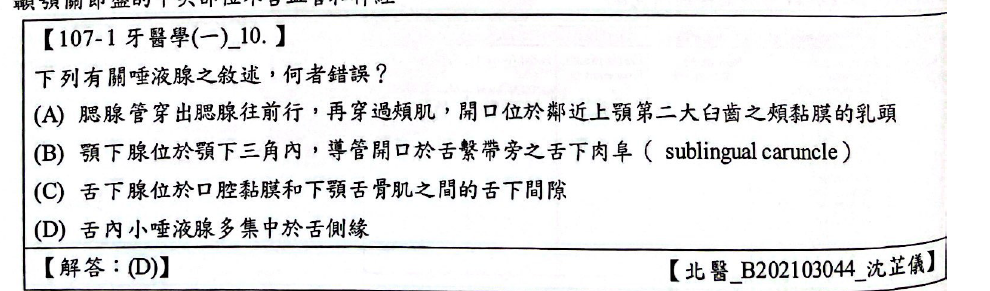 顳顎關節盤的中央部位不含血管和神經
【107-1 牙醫學(一)_10. 】
下列有關唾液腺之敘述，何者錯誤？
(A) 腮腺管穿出腮腺往前行，再穿過頰肌，開口位於鄰近上顎第二大臼齒之頰黏膜的乳頭
(B) 顎下腺位於顎下三角內，導管開口於舌繫帶旁之舌下肉阜（ sublingual caruncle）
(C) 舌下腺位於口腔黏膜和下顎舌骨肌之間的舌下間隙
(D) 舌內小唾液腺多集中於舌側緣
【解答：(D)】
【北醫_B202103044_沈芷儀】